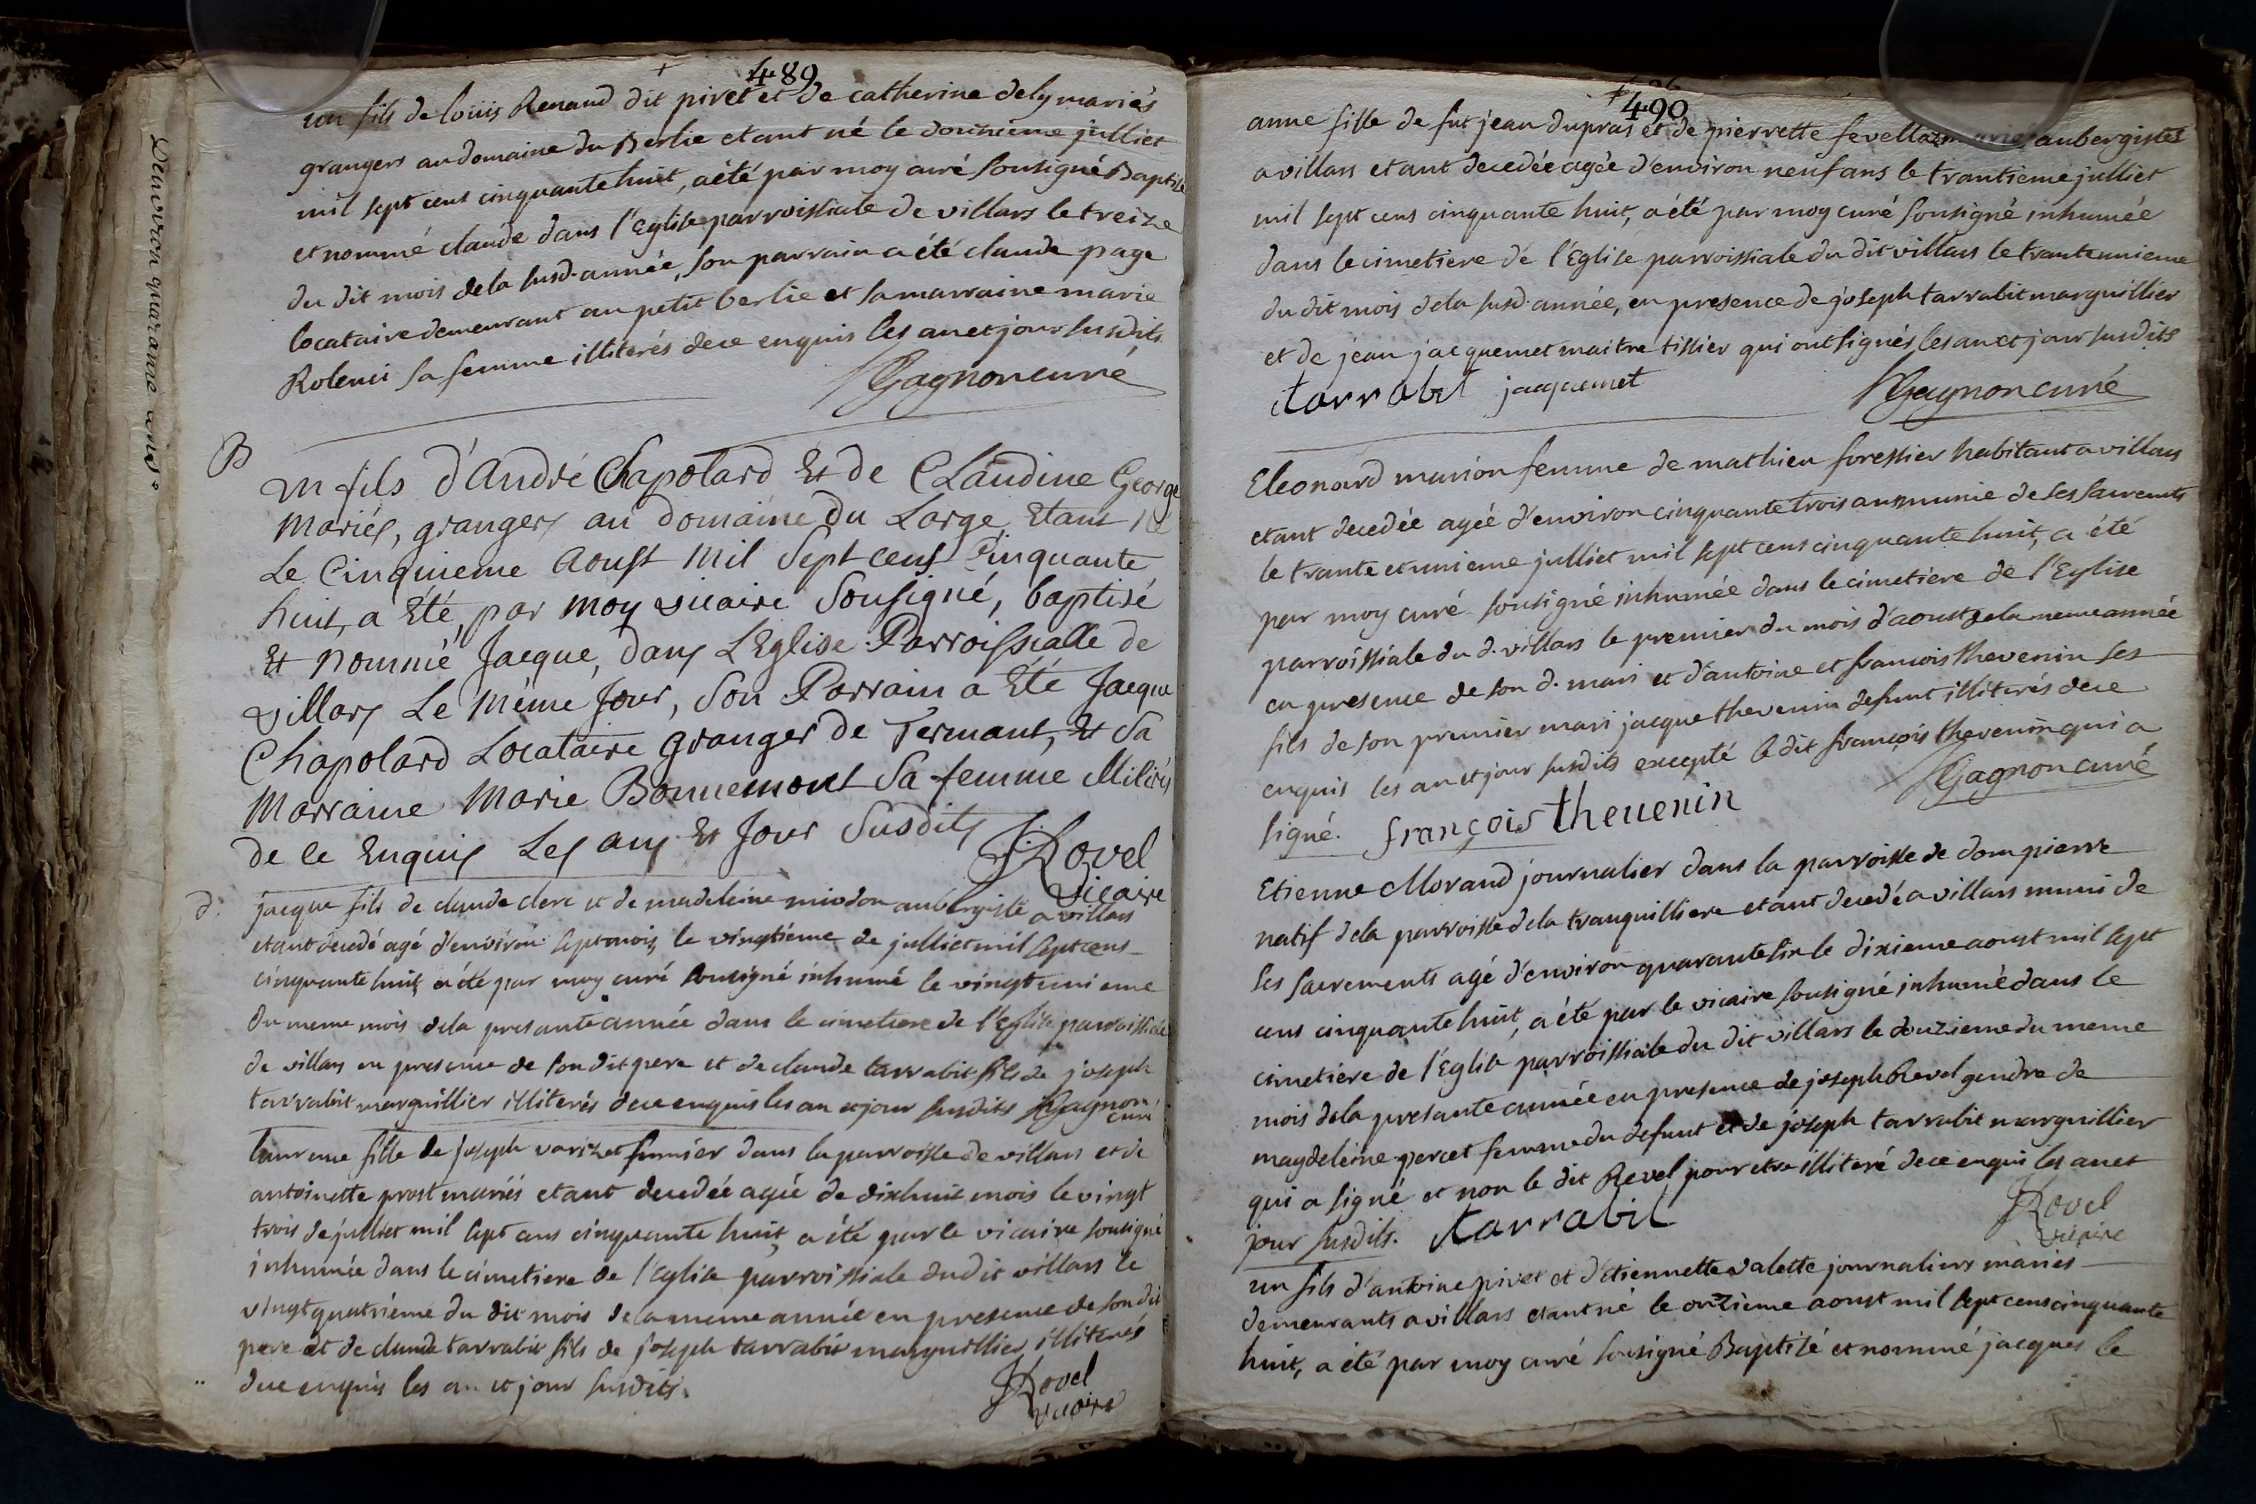 489
un fils de loüis Renaud dit pivet et de catherine dely mariés
grangers au domaine du Berlie etant né le douzieme julliet
mil sept cens cinquante huit, a été par moy curé sousigné Baptisé
et nommé claude dans l'Eglise parroissiale de villars le treize
du dit mois de la susd. année, son parrain a été claude page
locataire demeurant au petit berlie et sa marraine marie
sa femme illiterés de ce enquis les an et jour susdits.
Gagnon curé
B
un fils d'André Chapolard Et de Claudine George
Mariés, grangers au Domaine Du Large Etant Né
Le Cinquieme Aoust Mil Sept cens Cinquante
huit, a Eté, par Moy vicaire Sousigné, baptisé
Et Nommé Jacque, Dans L'Eglise Parroissialle de
villars Le Même Jour, Son Parrain a Eté Jacque
Chapolard Locataire granger de Termant, Et Sa
Marraine Marie Bonnemont Sa femme Illiterés
De ce Enquis Les ans Et Jour Susdits
JRovel
Vicaire
d.
jacque fils de claude clerc et de madeleine miodon aubergiste a villars
etant decedé agé d'environ sept mois le vingtieme de julliet mil sept cens
cinquante huit a été par moy curé sousigné inhumé le vingtunieme
du meme mois de la presante année dans le cimetiere de l'Eglise parroissiale
de villars en presence de son dit pere et de claude tarrabit fils de joseph
tarrabit marguillier illiterés de ce enquis les an et jour susdits Gagnon
curé
fille de joseph varizet fermier dans la parroisse de villars et de
antoinette prost mariés etant decedée agée de dixhuit mois le vingt
trois de julliet mil sept cens cinquante huit, a été par le vicaire sousigné
inhumée dans le cimetiere de l'Eglise parroissiale du dit villars le
vingtquatrieme du dit mois de la meme année en presence de son dit
pere et de claude tarrabit fils de joseph tarrabit marguillier illiterés
de ce enquis les an et jour susdits.
JRovel
vicaire
490
anne fille de fut jean dupras et de pierrette mariés aubergistes
a villars etant decedée agée d'environ neuf ans le trantieme julliet
mil sept cens cinquante huit, a été par moy curé sousigné inhumée
dans le cimetiere de l'Eglise parroissiale du dit villars le trantunieme
du dit mois de la susd. année, en presence de joseph tarrabit marguillier
et de jean jacquemet maitre tissier qui ont signés les an et jour susdits
tarrabit jacquemet Gagnon curé
Eleonard marion femme de mathieu forestier habitant a villars
etant decedée agée d'environ cinquante trois ans munie de ses sacrements
le trante et unieme julliet mil sept cens cinquante huit, a été
par moy curé sousigné inhumée dans le cimetiere de l'Eglise
parroissiale du d. villars le premier du mois d'aoust de la meme année
en presence de son d. mari et d'antoine et francois thevenin ses
fils de son premier mari jacque thevenin defunt illiterés de ce
enquis les an et jour susdits excepté le dit francois thevenin qui a
signé. françois theuenin Gagnon curé
Etienne Morand journalier dans la parroisse de dompierre
natif de la parroisse de la tranquilliere etant decedé a villars muni de
ses sacrements agé d'environ quarante six le dixieme aoust mil sept
cens cinquante huit, a été par le vicaire sousigné inhumé dans le
cimetiere de l'Eglise parroissiale du dit villars le douzieme du meme
mois de la presante année en presence de joseph Revel gendre de
magdeleine percet femme du defunt et de joseph tarrabit marguillier
qui a signé et non le dit Revel pour etre illiteré de ce enquis les an et
jour susdits. tarrabit
JRovel
vicaire
un fils d'antoine pivet et d'etiennette valette journaliers mariés
demeurants a villars etant né le onzieme aoust mil sept cens cinquante
huit, a été par moy curé sousigné Baptisé et nommé jacques le